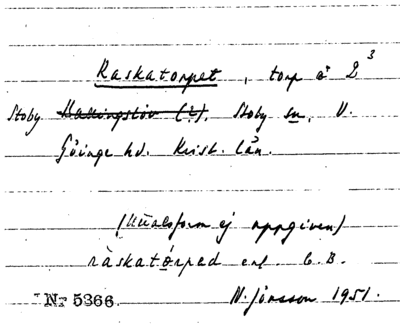 Raskatorpet, torp å 2³
Stoby Mallingslöv (?), Stoby sn, V.
Göinge hd. Krist. län.
(Uttalsform ej uppgiven)
råskatórped enl. C.B.
Nr 5366. N. Jönsson 1951.